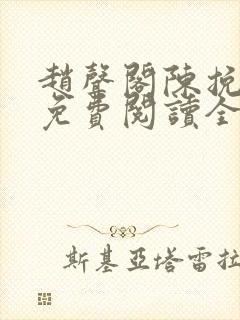 趙聲閣陳挽
免費閱讀全
斯基亞塔雷拉